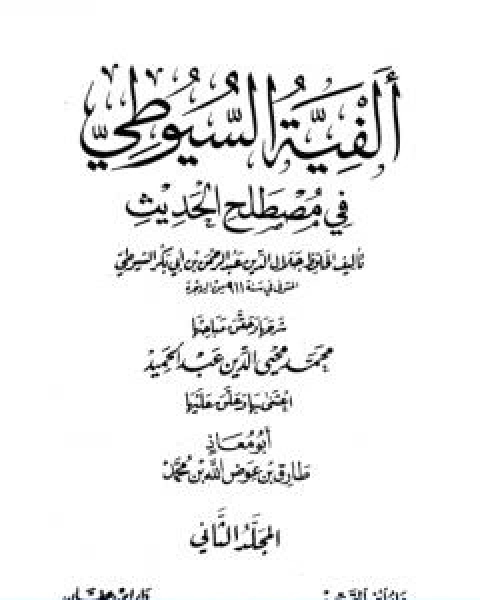 أَلْفِيَّةُ السُّيُوطِيِّ
فِي مُصْطَلَحِ الْحَدِيثِ
تأليف الحافظ جلال الدين عبد الرحمن بن أبي بكر السيوطي
المتوفى في سنة ٩١١ من الهجرة
شرحها وحقق مباحثها
محمد محيي الدين عبد الحميد
اعتنى بها وعلق عليها
أبو معاذ
طارق بن عوض الله بن محمد
المجلد الثاني
دار ابن القيم دار ابن عفان